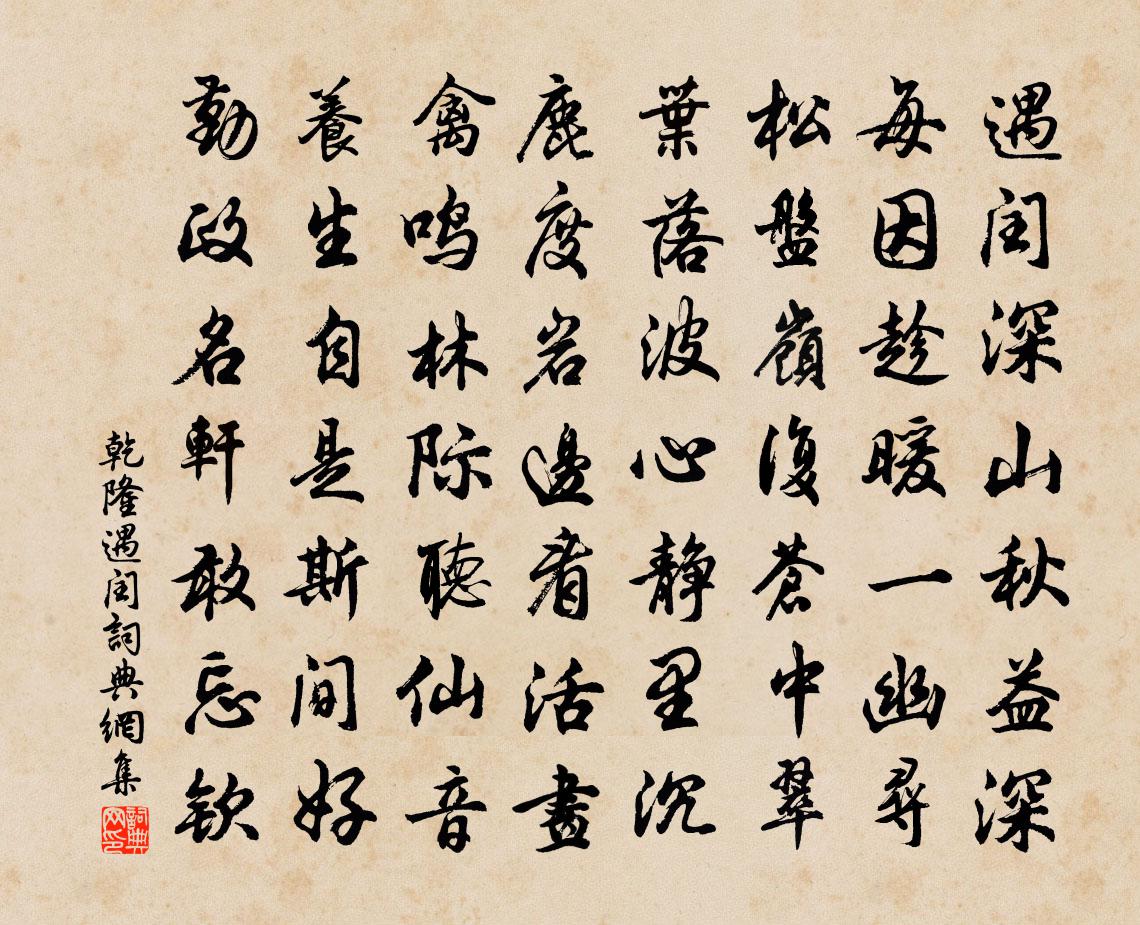 遇閏深山秋益深
每因趁暖一幽尋
松盤嶺復蒼中翠
葉落波心靜里沉
鹿度岩邊看活畫
禽鳴林際聽仙音
養生自是斯間好
勤政名軒敢忘欽
乾隆遇閏詞典網集
詞典網印